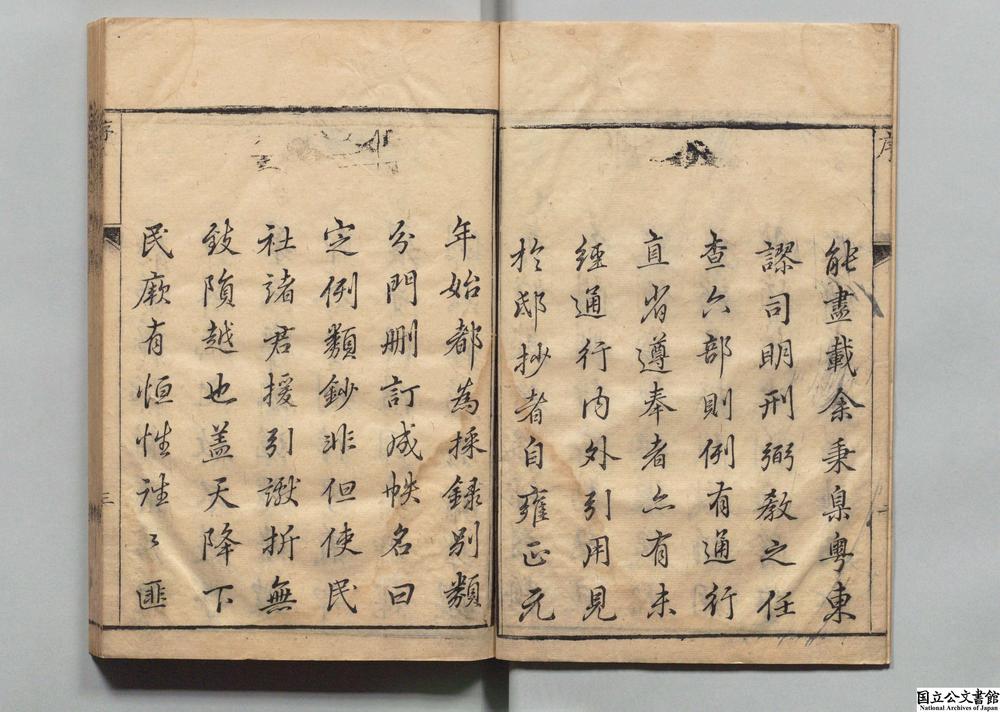 能盡載余秉臬粵東
謬司明刑弼教之任
查六部則例有通行
直省遵奉者亦有未
經通行內外引用見
於邸抄者自雍正元
年始都為採錄別類
分門刪訂成帙名曰
定例類鈔非但使民
社諸君援引讞折無
致隕越也盖天降下
民厥有恒性誰〻匪
序
序
三
国立公文書館
National Archives of Japan